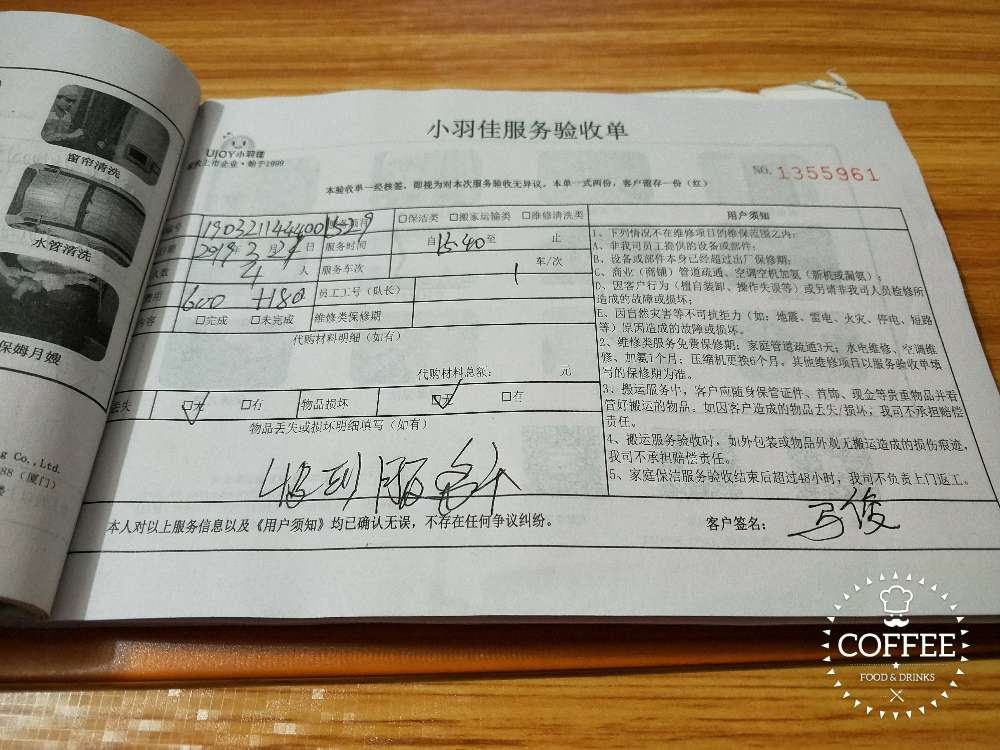 窗帘清洗
水管清洗
保姆月嫂
ng Co.,Ltd.
88（厦门）
小羽佳服务验收单
UJOY小羽佳
上市企业·始于1999
NO. 1355961
本验收单一经核签，即视为对本次服务验收无异议。本单一式两份，客户需存一份（红）
号 190321144400 服务项目 □保洁类 □搬家运输类 □维修清洗类
2019年3月29日 服务时间 自15:40至 止
人数 4 人 服务车次 1 车/次
费用 600 +180 员工工号（队长）
内容 □完成 □未完成 维修类保修期
代购材料明细（如有）
代购材料总额： 元
丢失 □无 □有 物品损坏 □无 □有
物品丢失或损坏明细填写（如有）
收到
本人对以上服务信息以及《用户须知》均已确认无误，不存在任何争议纠纷。
用户须知
1、下列情况不在维修项目的维保范围之内：
A、非我司员工提供的设备或部件；
B、设备或部件本身已经超过出厂保修期；
C、商业（商铺）管道疏通、空调空机加氨（新机或漏氨）；
D、因客户行为（擅自装卸、操作失误等）或另请非我司人员检修所
造成的故障或损坏；
E、因自然灾害等不可抗拒力（如：地震、雷电、火灾、停电、短路
等）原因造成的故障或损坏。
2、维修类服务免费保修期：家庭管道疏通3天；水电维修、空调维
修、加氨1个月；压缩机更换6个月。其他维修项目以服务验收单填
写的保修期为准。
3、搬运服务中，客户应随身保管证件、首饰、现金等贵重物品并看
管好搬运的物品。如因客户造成的物品丢失/损坏，我司不承担赔偿
责任。
4、搬运服务验收时，如外包装或物品外观无搬运造成的损伤痕迹，
我司不承担赔偿责任。
5、家庭保洁服务验收结束后超过48小时，我司不负责上门返工。
客户签名：
COFFEE
FOOD & DRINKS